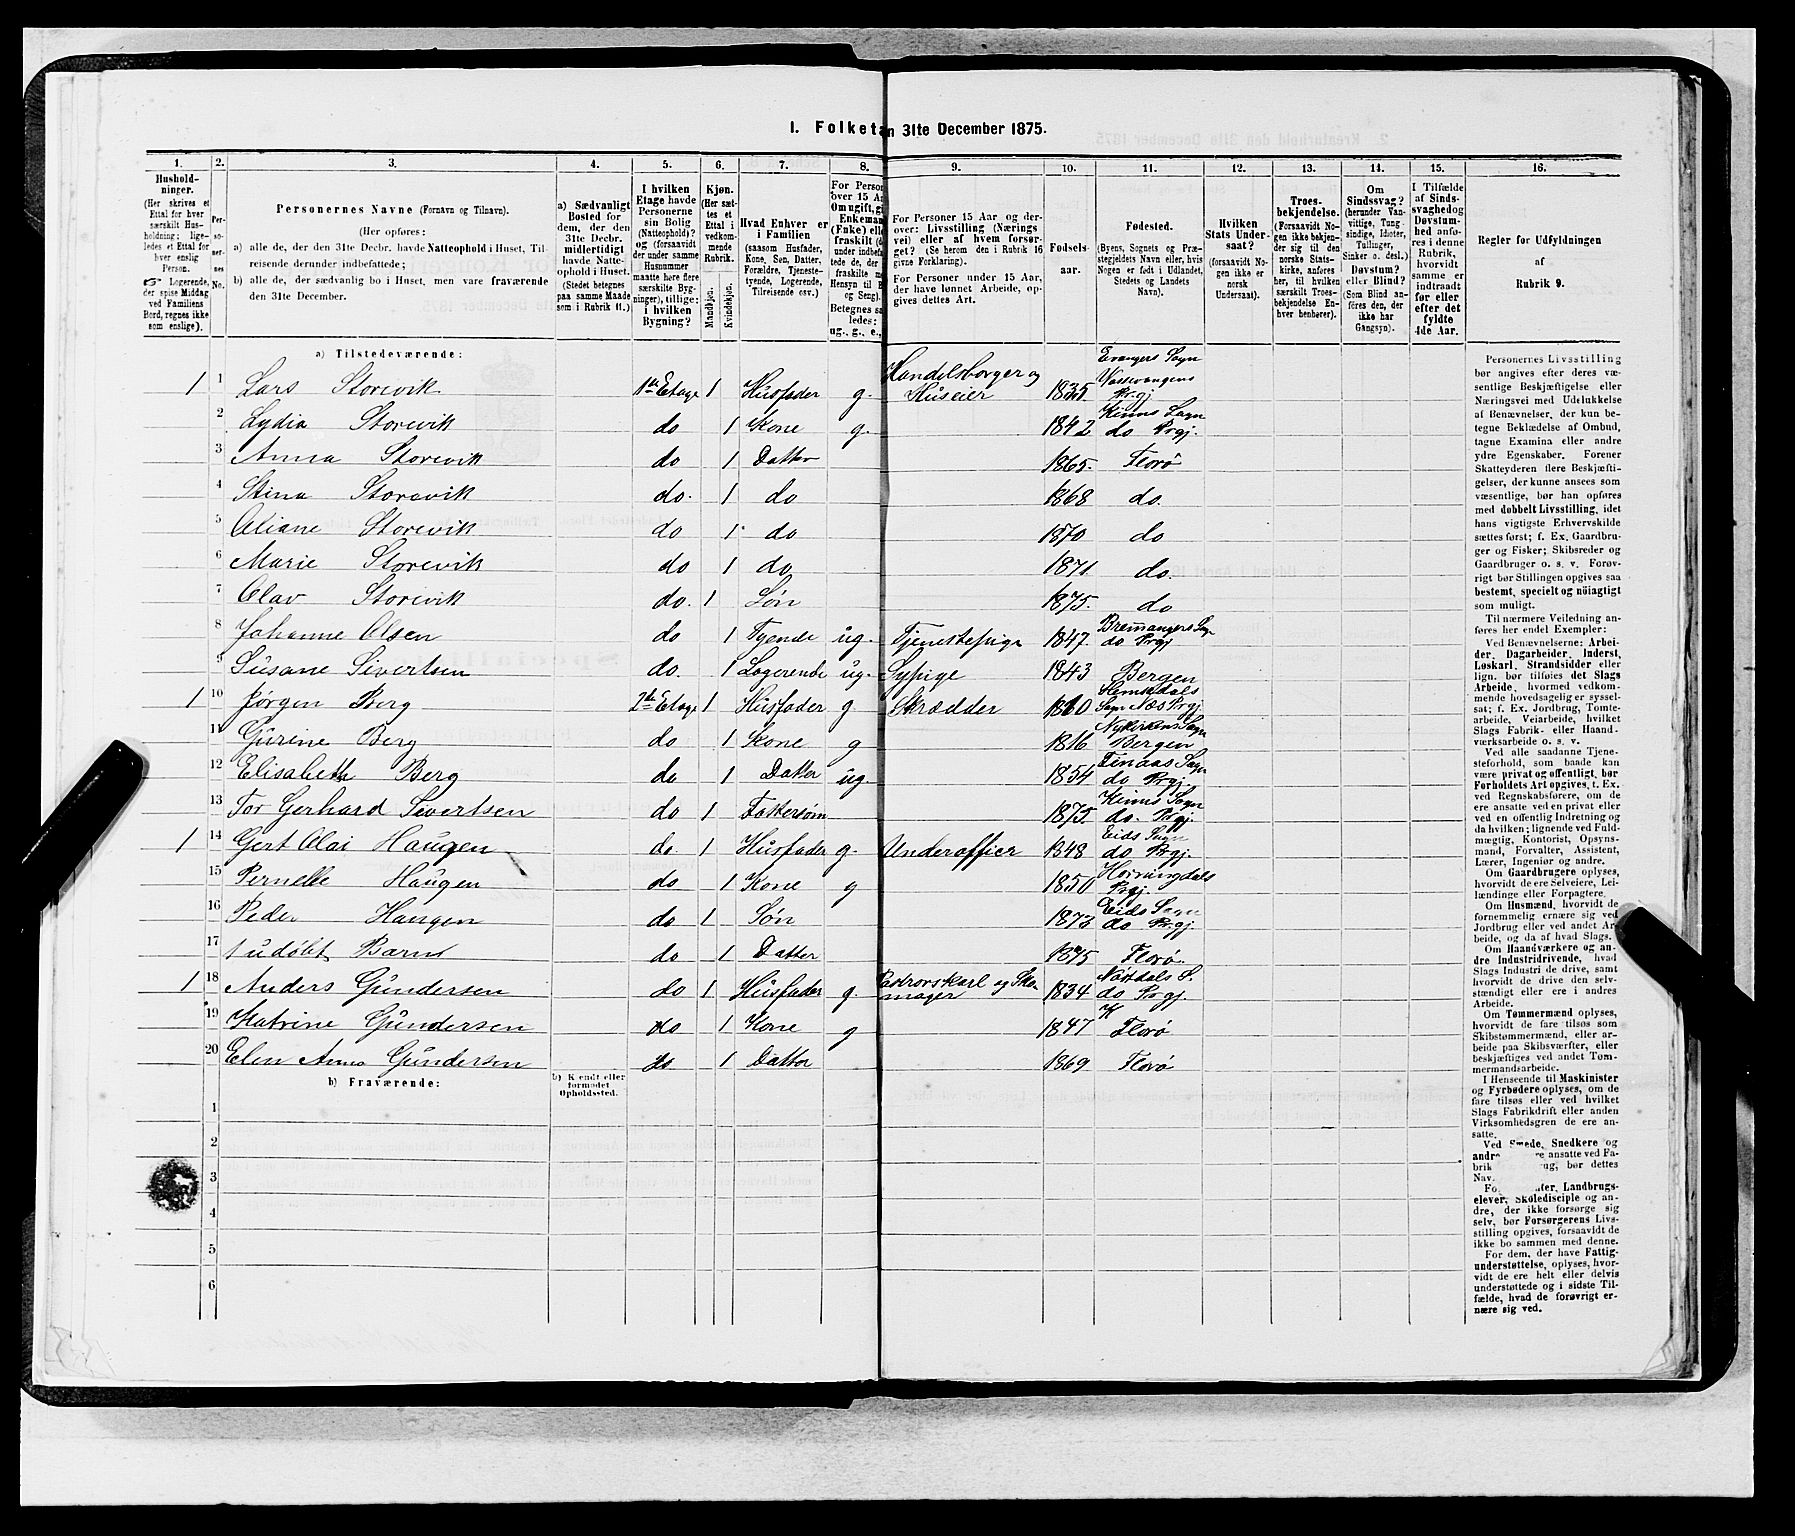 1. Folketan 31te December 1875.
1. 2. 3. 4. 5. 6. 7. 8. 9. 10. 11. 12. 13. 14. 15. 16.
Hushold-
ninger.
(Her skrives et
Ettal for hver
særskilt Hus-
holdning; lige-
ledes et Ettal for
hver enslig
Person.
Logerende,
der spise Middag
ved Familiens
Bord, regnes ikke
som enslige).
Per-
so-
ner-
nes
No.
Personernes Navne (Fornavn og Tilnavn).
(Her opføres:
a) alle de, der den 31te Decbr. havde Natteophold i Huset, Til-
reisende derunder indbefattede;
b) alle de, der sædvanlig bo i Huset, men vare fraværende
den 31te December.
a) Sædvanligt
Bosted for
dem, der den
31te Decbr.
midlertidigt
havde Natte-
ophold i Huset.
(Stedet betegnes
paa samme Maade
som i Rubrik 11.)
I hvilken
Etage havde
Personerne
sin Bolig
(Natteophold)?
og (forsaavidt
der under samme
Husnummer
maatte høre flere
særskilte Byg-
ninger), tillige:
i hvilken
Bygning?
Kjøn.
(Her sæt-
tes et
Ettal i
vedkom-
mende
Rubrik.
Mandkjøn.
Kvindekjøn.
Hvad Enhver er
i Familien
(saasom Husfader,
Kone, Søn, Datter,
Forældre, Tjeneste-
tyende, Logerende,
Tilreisende osv.)
For Person
over 15 A
Om ugift, gi
Enkeman
(Enke) elle
fraskilt (d
under indbef
de, der m
fraskilte me
Hensyn til B
og Seng).
Betegnes sa
ledes:
ug., g., e.,
For Personer 15 Aar og der-
over: Livsstilling (Nærings
vei) eller af hvem forsør-
get? (Se herom den i Rubrik 16
givne Forklaring).
For Personer under 15 Aar,
der have lønnet Arbeide, op-
gives dettes Art.
Fødsels-
aar.
Fødested.
(Byens, Sognets og Præ-
stegjeldets Navn eller, hvis
Nogen er født i Udlandet,
Stedets og Landets
Navn).
Hvilken
Stats Under-
saat?
(forsaavidt No-
gen ikke er
norsk
Undersaat).
Troes-
bekjendelse.
(Forsaavidt No-
gen ikke bekjen-
der sig til den
norske Stats-
kirke, anføres
her, til hvilken
særskilt Troes-
bekjendelse En-
hver henhører).
Om
Sindssvag?
(herunder Van-
vittige, Tung-
sindige, Idioter,
Tullinger,
Sinker o. desl.)
Døvstum?
eller Blind?
(Som Blind an-
føres den, der
ikke har
Gangsyn).
I Tilfælde
af Sinds-
svaghed og
Døvstum-
hed anfø-
res i denne
Rubrik,
hvorvidt
samme er
indtraadt
før eller
efter det
fyldte
4de Aar.
Regler for Udfyldningen
af
Rubrik 9.
a) Tilstedeværende:
1 1 Lars Storevik 1ste Etage 1 Husfader g. Handelsborger og Huseier 1835. Evangers Sogn Vossevangens Prgj
2 Lydia Storevik do 1 Kone g. 1842 Kinns Sogn do Prgj.
3 Anna Storevik do 1 Datter 1865. Florø
4 Stina Storevik do. 1 do 1868 do.
5 Oliane Storevik do 1 do 1870 do
6 Marie Storevik do 1 do 1871 do.
7 Olav Storevik do. 1 Søn 1875. do
8 Johanne Olsen do 1 Tyende ug. Tjenestepige 1847. Bremangers Sogn do Prgj
9 Susane Sivertsen do. 1 Logerende ug. Sypige 1843 Bergen
1 10 Jørgen Berg 2den Etage 1 Husfader g Skrædder Hemsedals Sogn Næs Prgj.
11 Gurine Berg do 1 Kone g 1816 Nykirkens Sogn Bergen
12 Elisabeth Berg do 1 Datter ug. 1854 Sogn do Prgj
13 Tor Gerhard Sivertsen do 1 1875. Kinns Sogn do. Prgj.
1 14 Gert Olai Haugen do. 1 Husfader g. Underofficer 1848 Eids Sogn do Prgj.
15 Pernelle Haugen do 1 Kone g 1850 Prgj.
16 Peder Haugen do 1 Søn 1873 Eids Sogn do Prgj.
17 udøbt Barn do 1 Datter 1875 Florø.
1 18 Anders Gundersen do 1 Husfader g. og Skomager 1834 S. do Prgj.
19 Katrine Gundersen do 1 Kone g 1847 Florø
20 Elen Anna Gundersen do 1 Datter 1869 Florø
b) Fraværende:
b) Kendt eller
formodet
Opholdssted.
1
2
3
4
5
6
Personernes Livsstilling
bør angives efter deres væ-
sentlige Beskjæftigelse eller
Næringsvei med Udelukkelse
af Benævnelser, der kun be-
tegne Beklædelse af Ombud,
tagne Examina eller andre
ydre Egenskaber. Forener
Skatteyderen flere Beskjæfti-
gelser, der kunne ansees som
væsentlige, bør han opføres
med dobbelt Livsstilling, idet
hans vigtigste Erhvervskilde
sættes først; f. Ex. Gaardbru-
ger og Fisker; Skibsreder og
Gaardbruger o. s. v. Forøv-
rigt bør Stillingen opgives saa
bestemt, specielt og nøiagtigt
som muligt.
Til nærmere Veiledning an-
føres her endel Exempler:
Ved Benævnelserne: Arbei-
der, Dagarbeider, Inderst,
Løskarl, Strandsidder eller
lign. bør tilføies det Slags
Arbeide, hvormed vedkom-
mende hovedsagelig er syssel-
sat; f. Ex. Jordbrug, Tomte-
arbeide, Veiarbeide, hvilket
Slags Fabrik- eller Haand-
værksarbeide o. s. v.
Ved alle saadanne Tjene-
steforhold, som baade kan
være privat og offentligt, bør
Forholdets Art opgives, t. Ex.
ved Regnskabsførere, om de
ere ansatte ved en privat eller
ved en offentlig Indretning og
da hvilken; lignende ved Fuld-
mægtig, Kontorist, Opsyns-
mand, Forvalter, Assistent,
Lærer, Ingeniør og andre.
Om Gaardbrugere oplyses,
hvorvidt de ere Selveiere, Lei-
lændinge eller Forpagtere.
Om Husmænd, hvorvidt de
fornemmelig ernære sig ved
Jordbrug eller ved andet Ar-
beide, og da af hvad Slags.
Om Haandværkere og an-
dre Industridrivende, hvad
Slags Industri de drive, samt
hvorvidt de drive den selv-
stændigt eller ere i andres
Arbeide.
Om Tømmermænd oplyses,
hvorvidt de fare tilsøs som
Skibstømmermænd, eller ar-
beide paa Skibsværfter, eller
beskjæftiges ved andet Tøm-
mermandsarbeide.
I Henseende til Maskinister
og Fyrbødere oplyses, om de
fare tilsøs eller ved hvilket
Slags Fabrikdrift eller anden
Virksomhedsgren de ere an-
satte.
Ved Smede, Snedkere og
andre ansatte ved Fa-
brik bør dettes
Nav
Fo Landbrugs-
elever, Skoledisciple og an-
dre, der ikke forsørge sig
selv, bør Forsørgerens Livs-
stilling opgives, forsaavidt de
ikke bo sammen med denne.
For dem, der have Fattig-
understøttelse, oplyses, hvor-
vidt de ere helt eller delvis
understøttede og i sidste Til-
fælde, hvad de forøvrigt er-
nære sig ved.